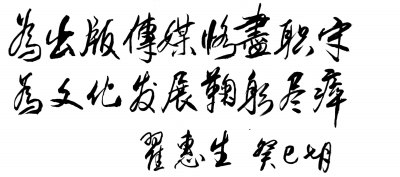 為出版傳媒恪盡职守
為文化发展鞠躬尽瘁
翟惠生 癸巳七月